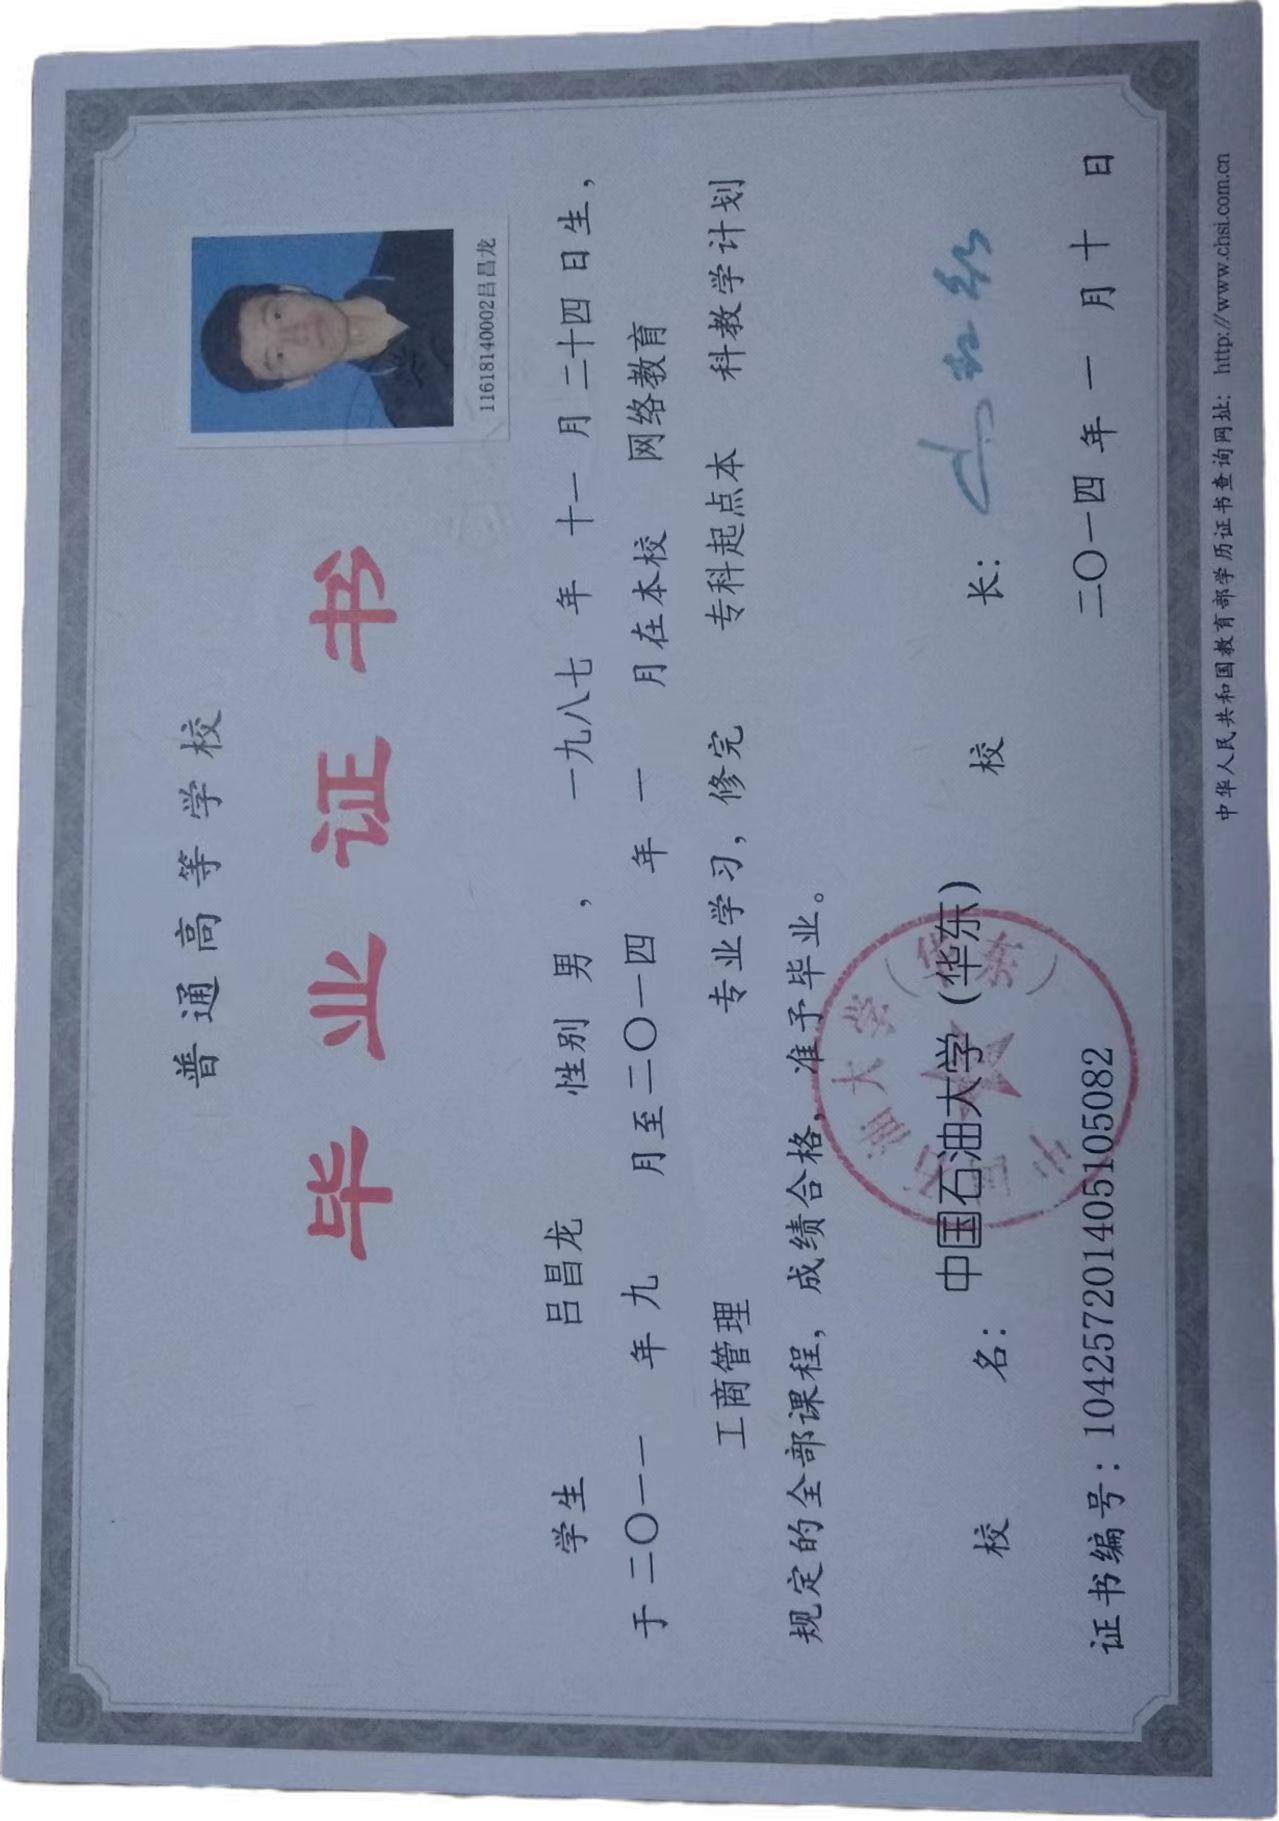 普通高等学校
毕业证书
11618140002吕昌龙
学生 吕昌龙 性别 男 , 一九八七 年 十一 月 二十四 日生,
于 二〇一一 年 九 月至 二〇一四 年 一 月在本校 网络教育
工商管理 专业学习, 修完 专科起点本 科教学计划
规定的全部课程, 成绩合格, 准予毕业。
校 名: 中国石油大学(华东) 校 长:
中国石油大学(华东)
证书编号:104257201405105082 二〇一四 年 一 月 十 日
中华人民共和国教育部学历证书查询网址: http://www.chsi.com.cn